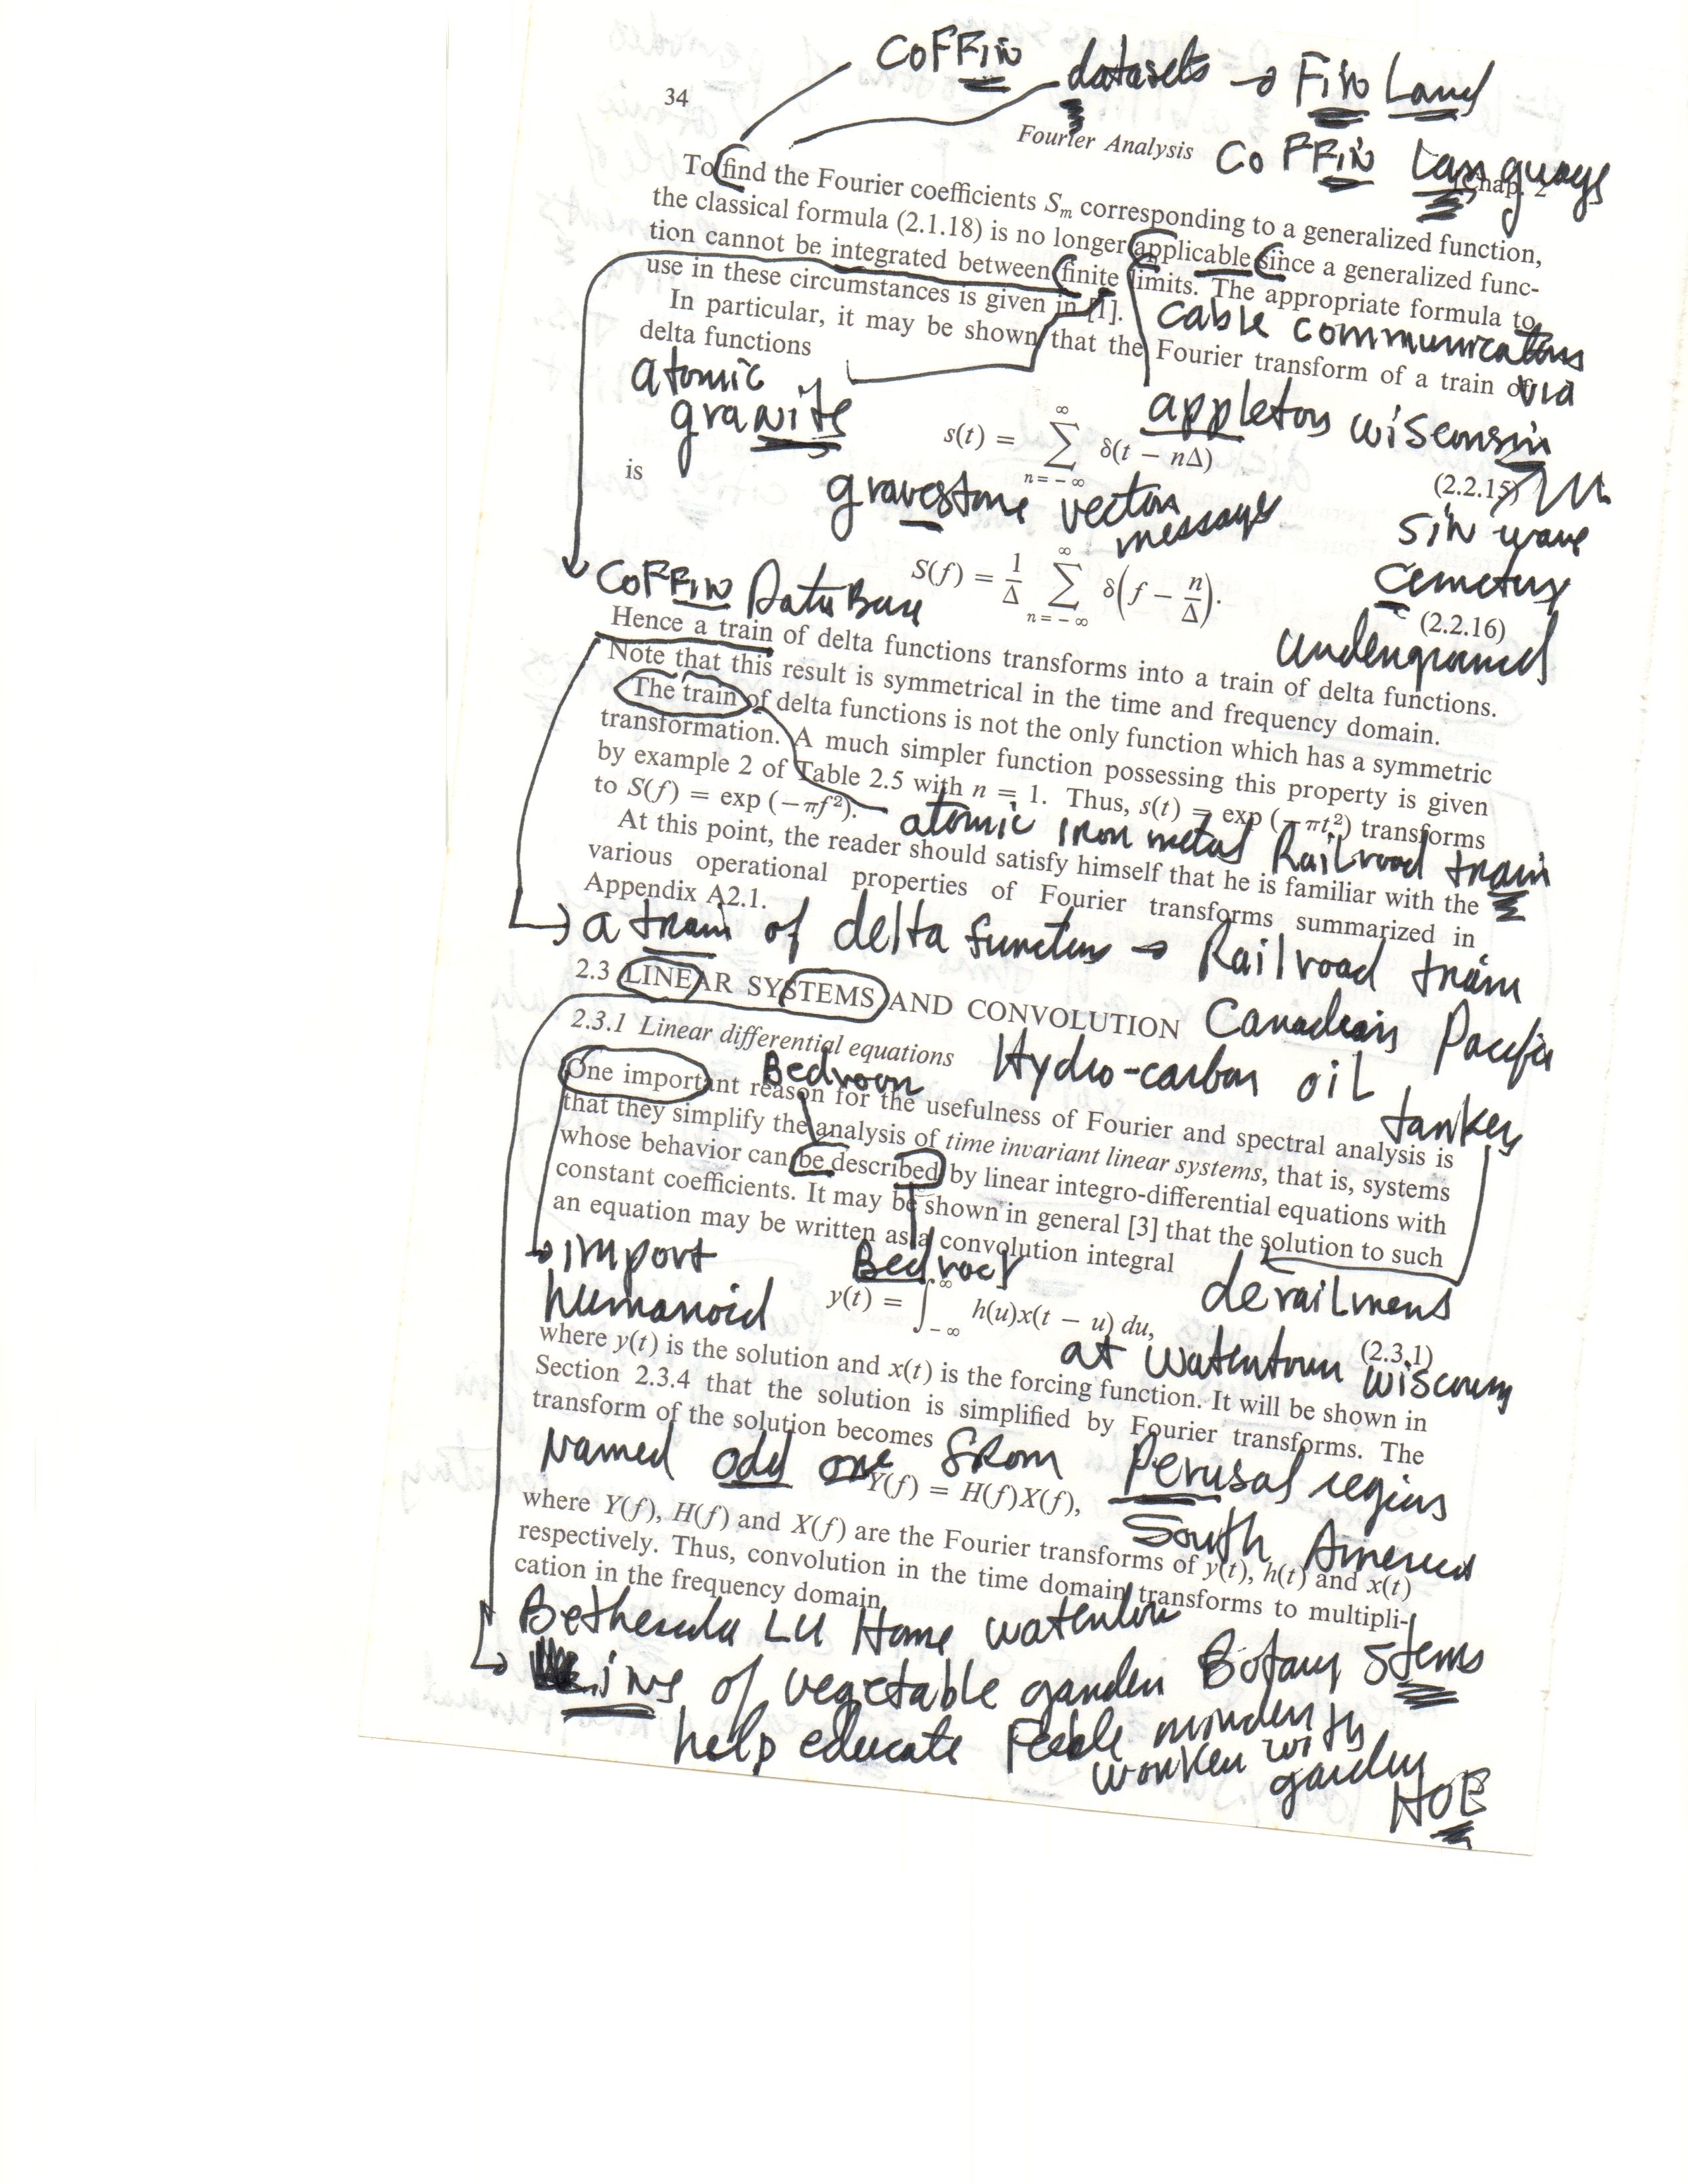 COFFIN datasets → FIN Land
34
Fourier Analysis
COFFIN Languages
Chap. 2
To find the Fourier coefficients Sₘ corresponding to a generalized function,
the classical formula (2.1.18) is no longer applicable since a generalized func-
tion cannot be integrated between finite limits. The appropriate formula to
use in these circumstances is given in [1].
cable communications
In particular, it may be shown that the Fourier transform of a train of
via
delta functions
atomic
granite
appleton wisconsin
s(t) = ∑_{n=−∞}^{∞} δ(t − nΔ)
(2.2.15)
is
gravestone vector
messages
sin wave
S(f) = 1/Δ ∑_{n=−∞}^{∞} δ(f − n/Δ).
cemetery
(2.2.16)
COFFIN DataBase
underground
Hence a train of delta functions transforms into a train of delta functions.
Note that this result is symmetrical in the time and frequency domain.
The train of delta functions is not the only function which has a symmetric
transformation. A much simpler function possessing this property is given
by example 2 of Table 2.5 with n = 1. Thus, s(t) = exp (−πt²) transforms
to S(f) = exp (−πf²).
atomic iron metal Railroad train
At this point, the reader should satisfy himself that he is familiar with the
various operational properties of Fourier transforms summarized in
Appendix A2.1.
→ a train of delta functions → Railroad train
2.3 LINEAR SYSTEMS AND CONVOLUTION
Canadian Pacific
2.3.1 Linear differential equations
Hydro-carbon oil
tanker
Bedroom
One important reason for the usefulness of Fourier and spectral analysis is
that they simplify the analysis of time invariant linear systems, that is, systems
whose behavior can be described by linear integro-differential equations with
constant coefficients. It may be shown in general [3] that the solution to such
an equation may be written as a convolution integral
→ import
humanoid
Bedrock
derailment
y(t) = ∫_{−∞}^{∞} h(u)x(t − u) du,
(2.3.1)
at Watertown Wisconsin
where y(t) is the solution and x(t) is the forcing function. It will be shown in
Section 2.3.4 that the solution is simplified by Fourier transforms. The
transform of the solution becomes
Named odd one from Perusal region
Y(f) = H(f)X(f),
South America
where Y(f), H(f) and X(f) are the Fourier transforms of y(t), h(t) and x(t)
respectively. Thus, convolution in the time domain transforms to multipli-
cation in the frequency domain.
Bethesda LU Home watertown
of vegetable garden Botany Stems
help educate Feeble minden
worker with
garden
HOE